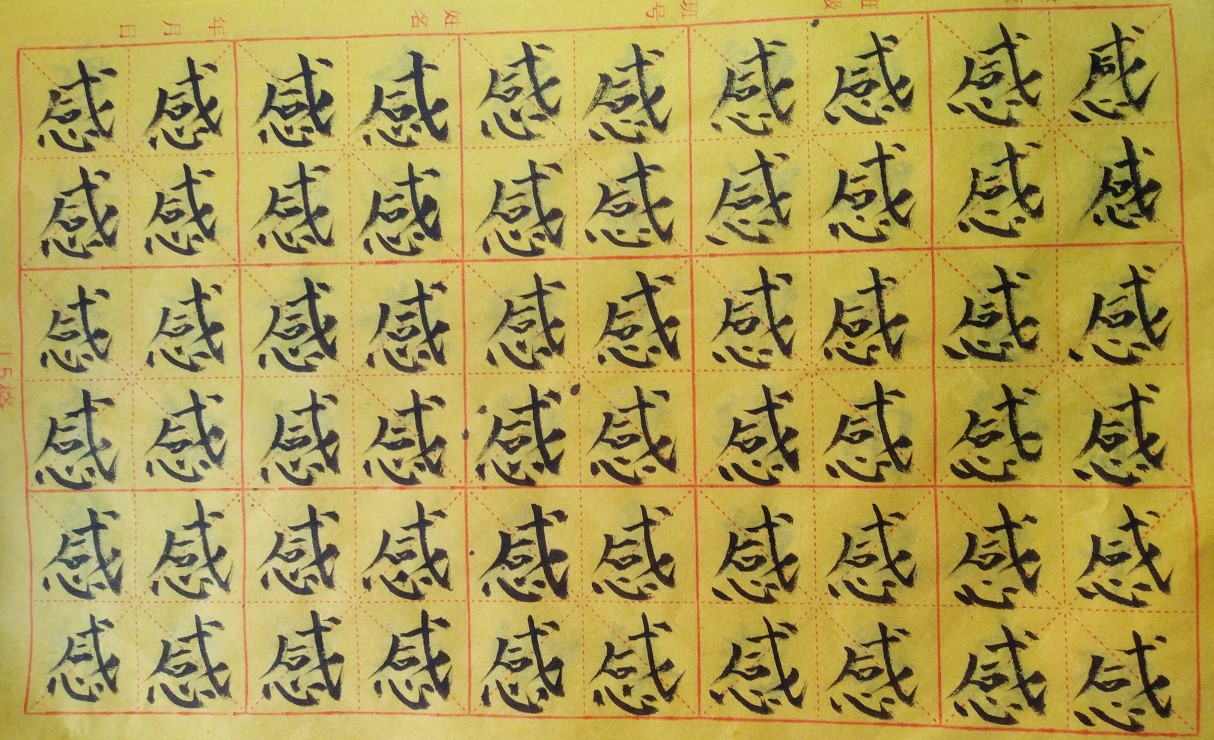 姓名 年 月 日
感感感感感感感感感感
感感感感感感感感感感
感感感感感感感感感感
感感感感感感感感感感
感感感感感感感感感感
感感感感感感感感感感